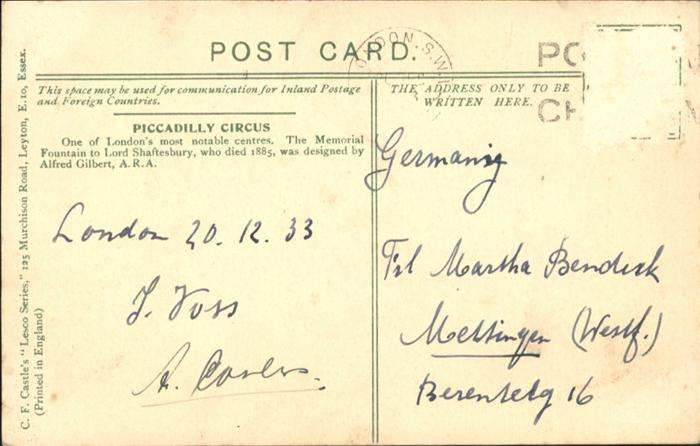 POST CARD.
LONDON. S.W.1
PO
CH
This space may be used for communication for Inland Postage
and Foreign Countries.
PICCADILLY CIRCUS
One of London's most notable centres. The Memorial
Fountain to Lord Shaftesbury, who died 1885, was designed by
Alfred Gilbert, A.R.A.
London 20.12.33
J. Voss
THE ADDRESS ONLY TO BE
WRITTEN HERE.
Germany
Frl Martha Bendick
Mettingen (Westf.)
16
C. F. Castle's "Lesco Series," 125 Murchison Road, Leyton, E.10, Essex.
(Printed in England)